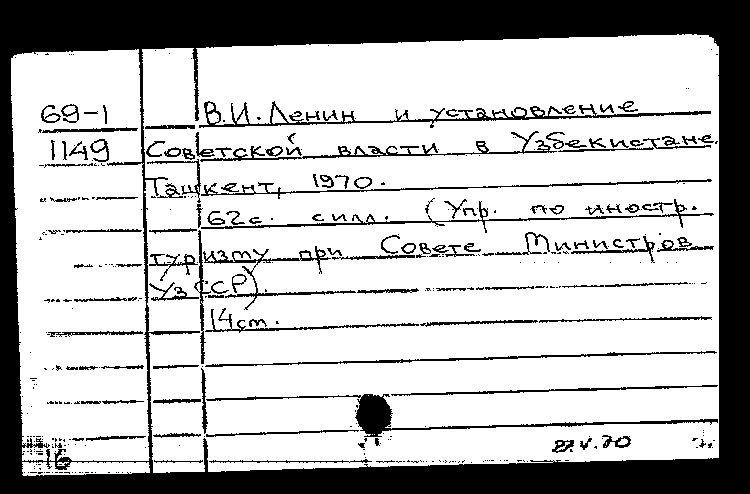 69-1 В.И. Ленин и установление
1149 Советской власти в Узбекистане.
Ташкент, 1970.
62с. с илл. (Упр. по иностр.
туризму при Совете Министров
УзССР).
14см.
27.V.70
16